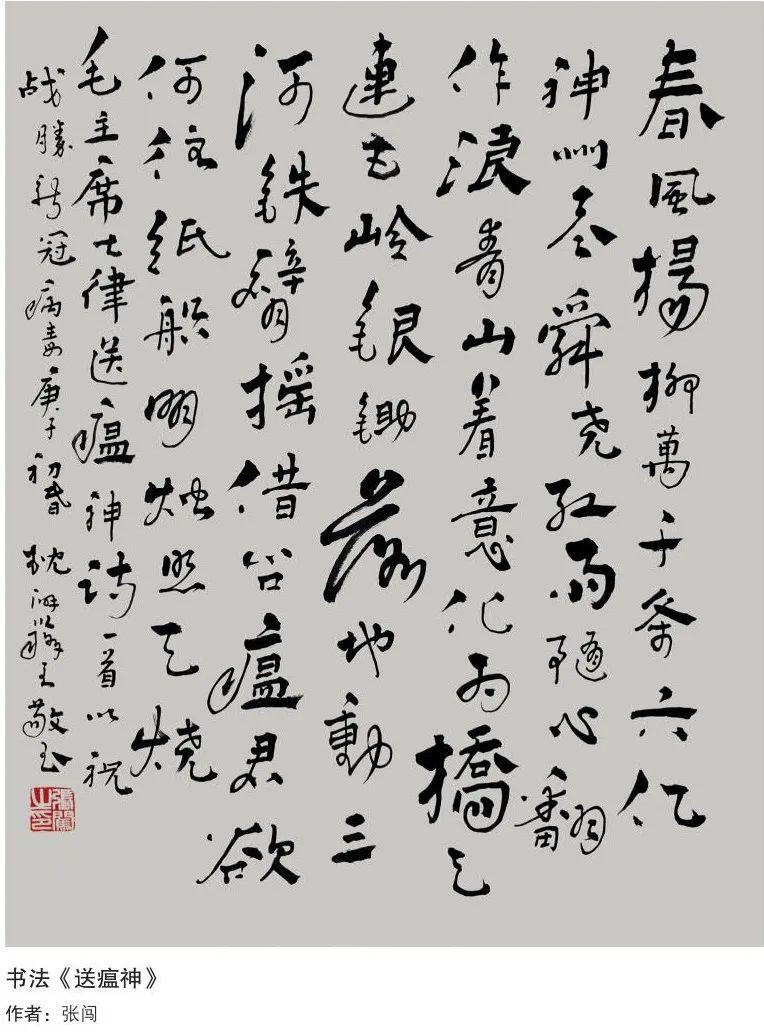 春風揚柳萬千条六亿
神州尽舜尧红雨隨心翻
作浪青山着意化为橋天
連五岭银锄落地動三
河铁臂摇借问瘟君欲
何往纸船明烛照天烧
毛主席七律送瘟神诗一首以祝
战勝新冠病毒庚子初春
張闖之印
书法《送瘟神》
作者：张闯